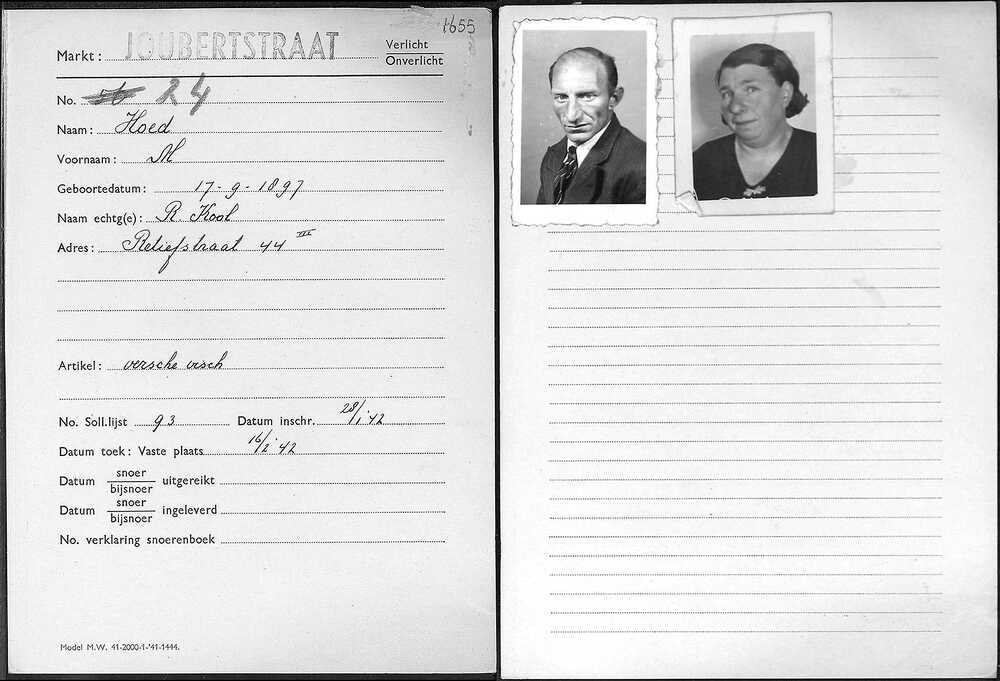 1655
Markt: JOUBERTSTRAAT Verlicht
Onverlicht
No. 56 24
Naam: Hoed
Voornaam: M
Geboortedatum: 17-9-1897
Naam echtg(e): R Kool
Adres: Reliefstraat 44 III
Artikel: versche visch
No. Soll.lijst 93 Datum inschr. 28/1 '42
Datum toek: Vaste plaats 16/2 '42
Datum snoer/bijsnoer uitgereikt
Datum snoer/bijsnoer ingeleverd
No. verklaring snoerenboek
Model M.W. 41-2000-1-'41-1444.